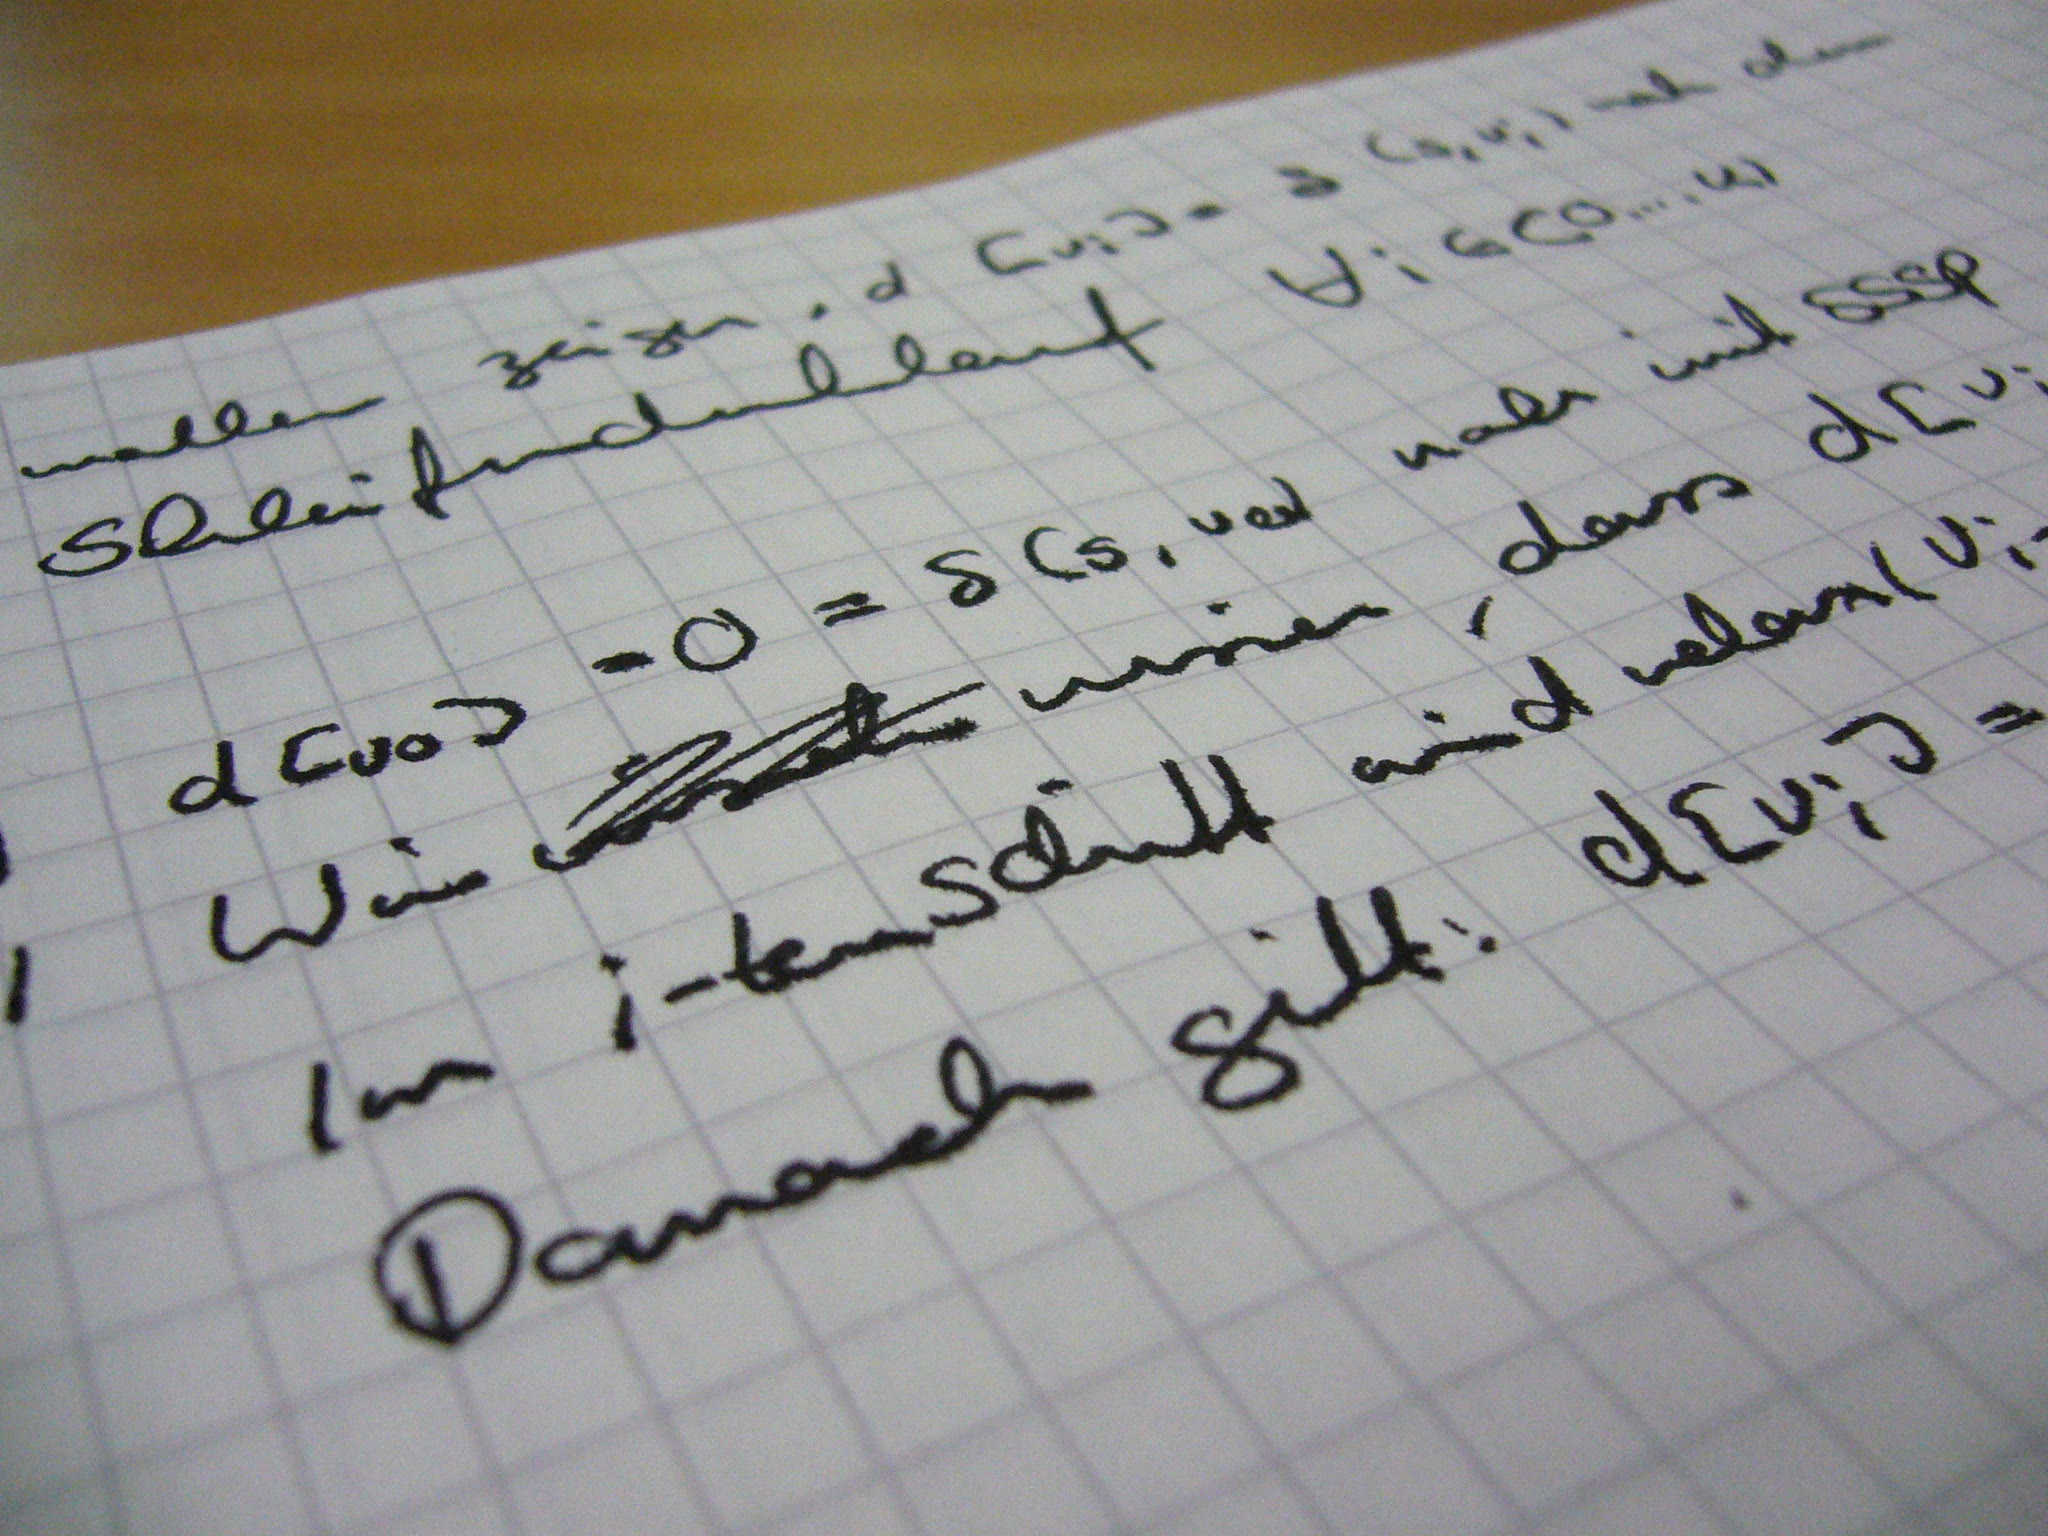 wollen zeigen, d[vi] = δ(s,vi) nach dem
Schleifendurchlauf ∀ i ∈ (0...,k)
d[v0] = 0 = δ(s,v0) nach init SSSP
Wir wissen, dass d[vi
Im i-ten Schritt wird relaxt(vi-
Danach gilt: d[vi] =